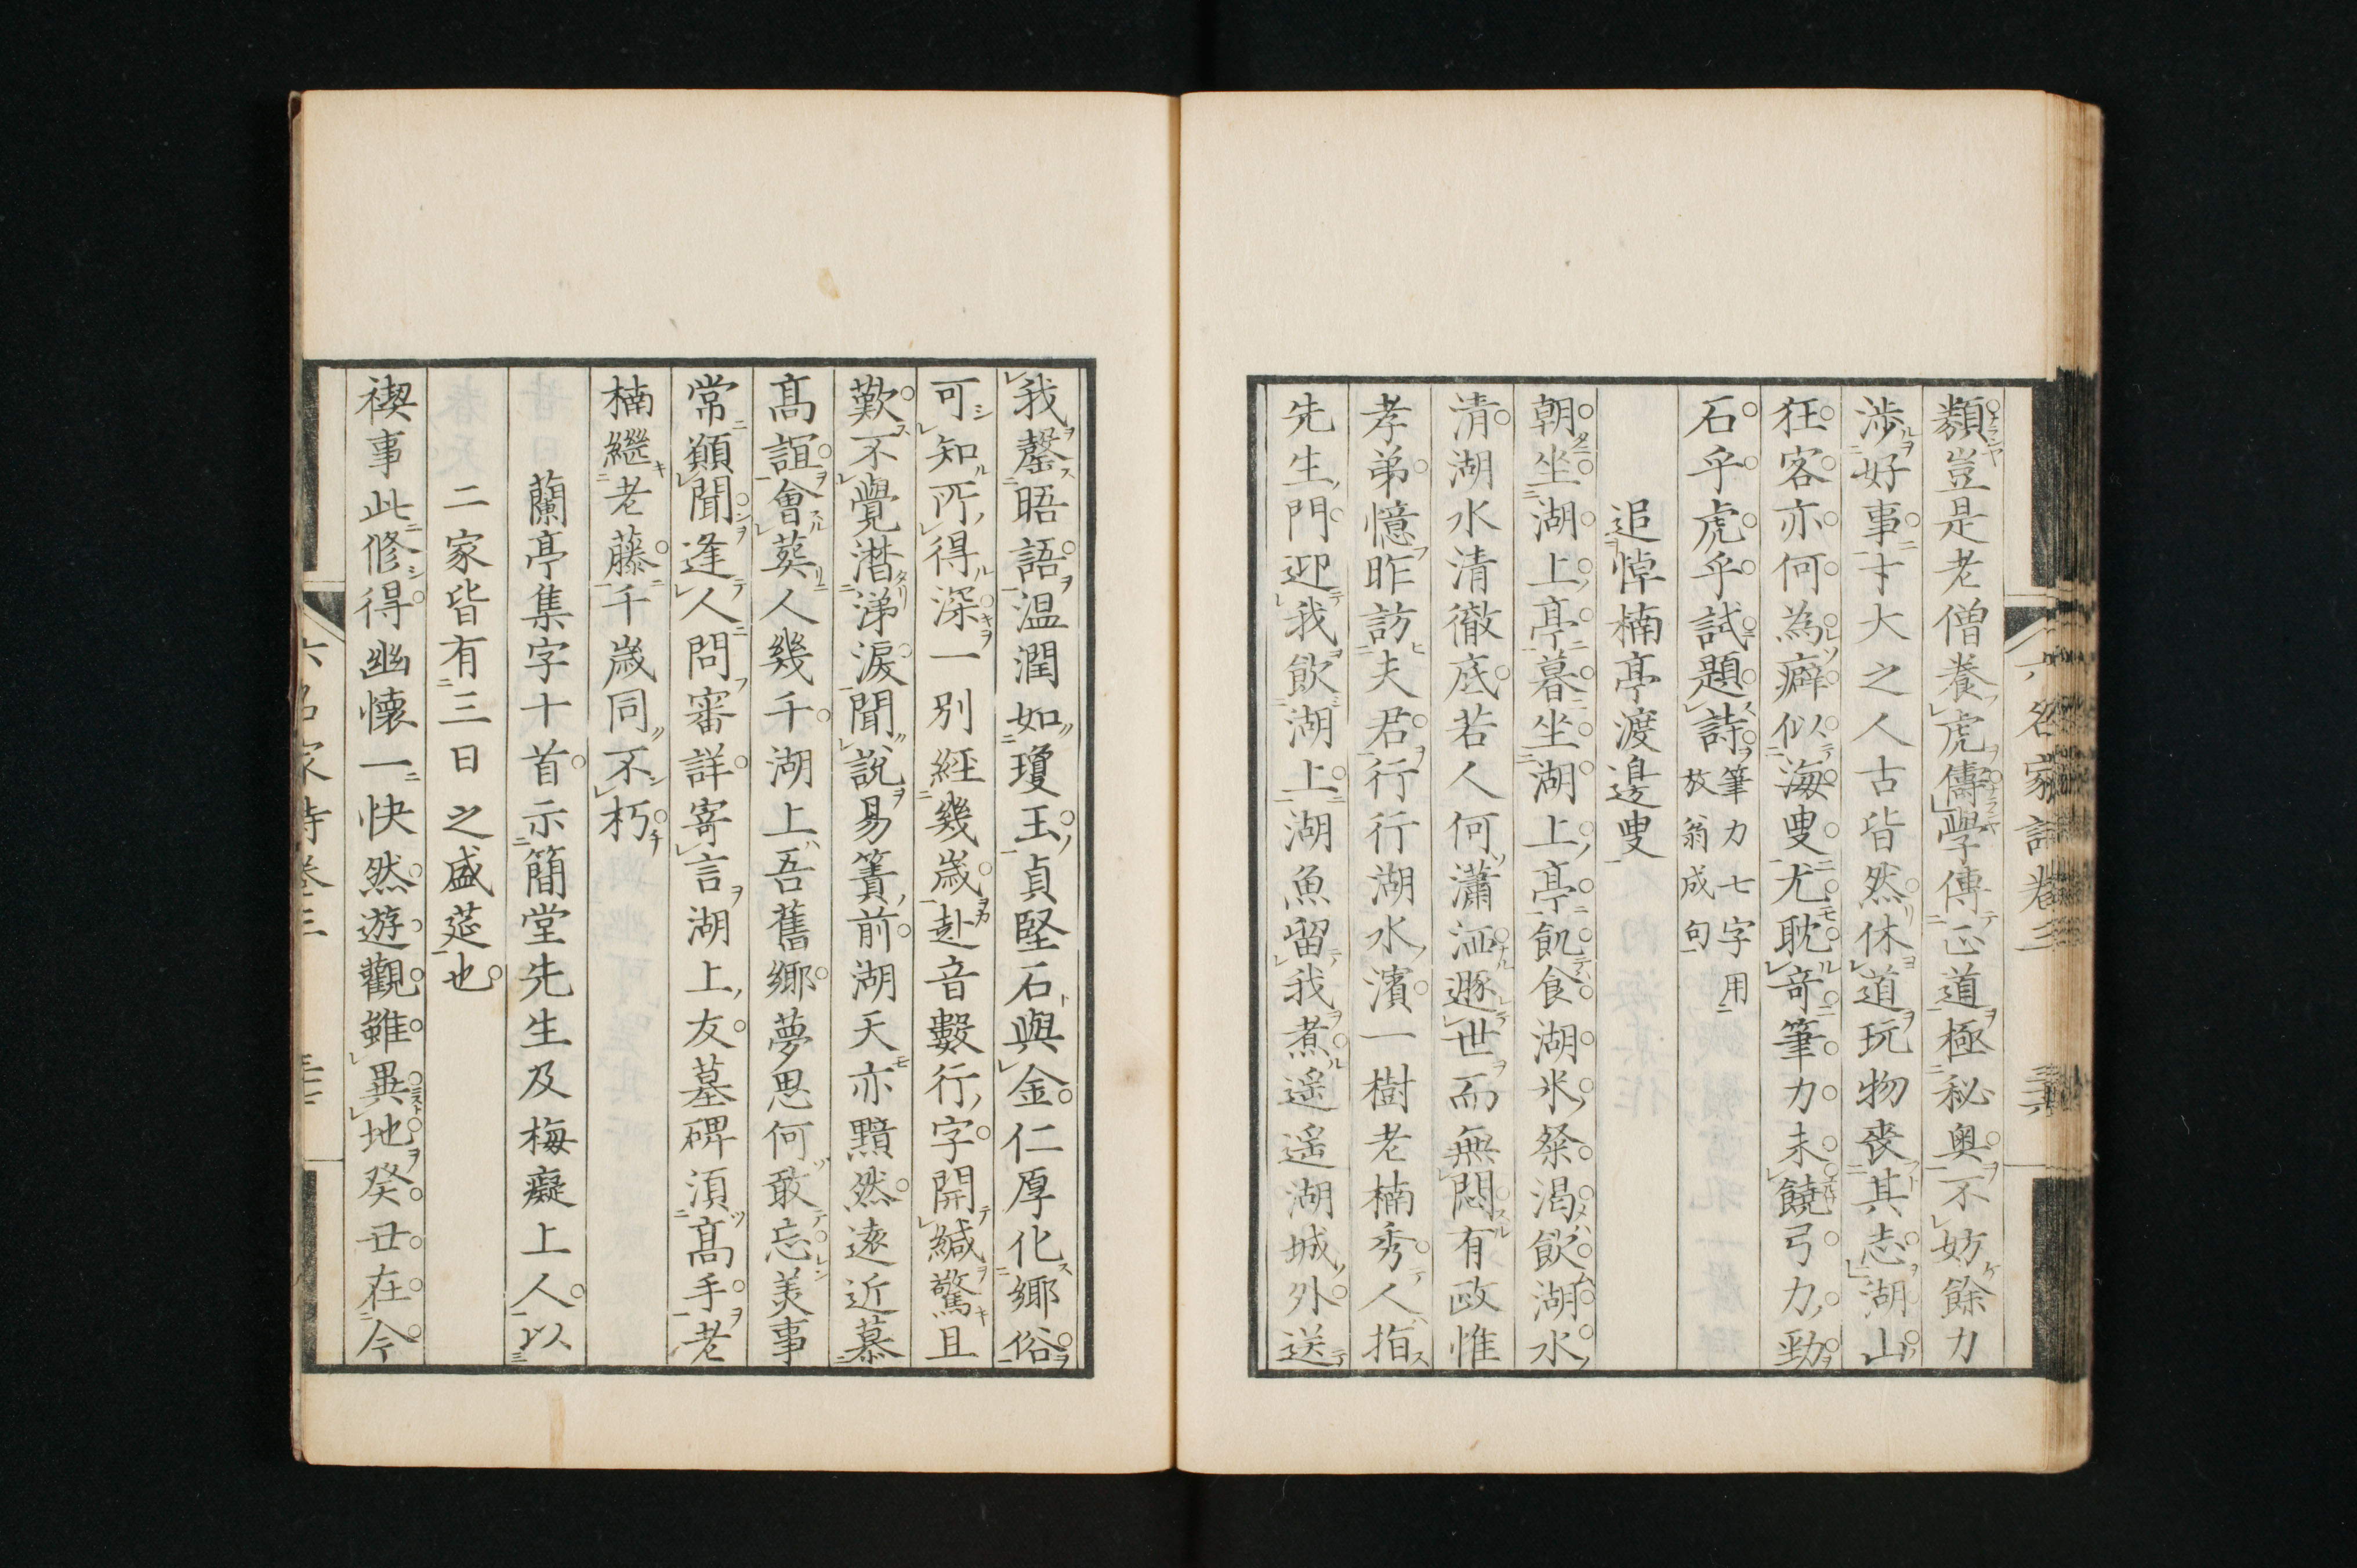 六名家詩卷三
類豈是老僧養虎儔學傳正道極秘奥不妨餘力
渉好事才大之人古皆然休道玩物喪其志湖山
狂客亦何為癖似海叟尤耽奇筆力未饒弓力勁
石乎虎乎試題詩筆力七字用放翁成句
追悼楠亭渡邊叟
朝坐湖上亭暮坐湖上亭飢食湖米粲渴飲湖水
清湖水清徹底若人何瀟洒遯世而無悶有政惟
孝弟憶昨訪夫君行行湖水濱一樹老楠秀人指
先生門迎我飲湖上湖魚留我煮遥遥湖城外送
我罄晤語温潤如瓊玉貞堅石與金仁厚化鄉俗
可知所得深一別經幾歳赴音數行字開緘驚且
歎不覺潛涕淚聞說易簀前湖天亦黯然遠近慕
髙誼會葬人幾千湖上吾舊鄉夢思何敢忘美事
常願聞逢人問審詳寄言湖上友墓碑須髙手老
楠繼老藤千歳同不朽
蘭亭集字十首示簡堂先生及梅癡上人以
二家皆有三日之盛莚也
禊事此修得幽懷一快然遊觀雖異地癸丑在今
六名家詩卷三